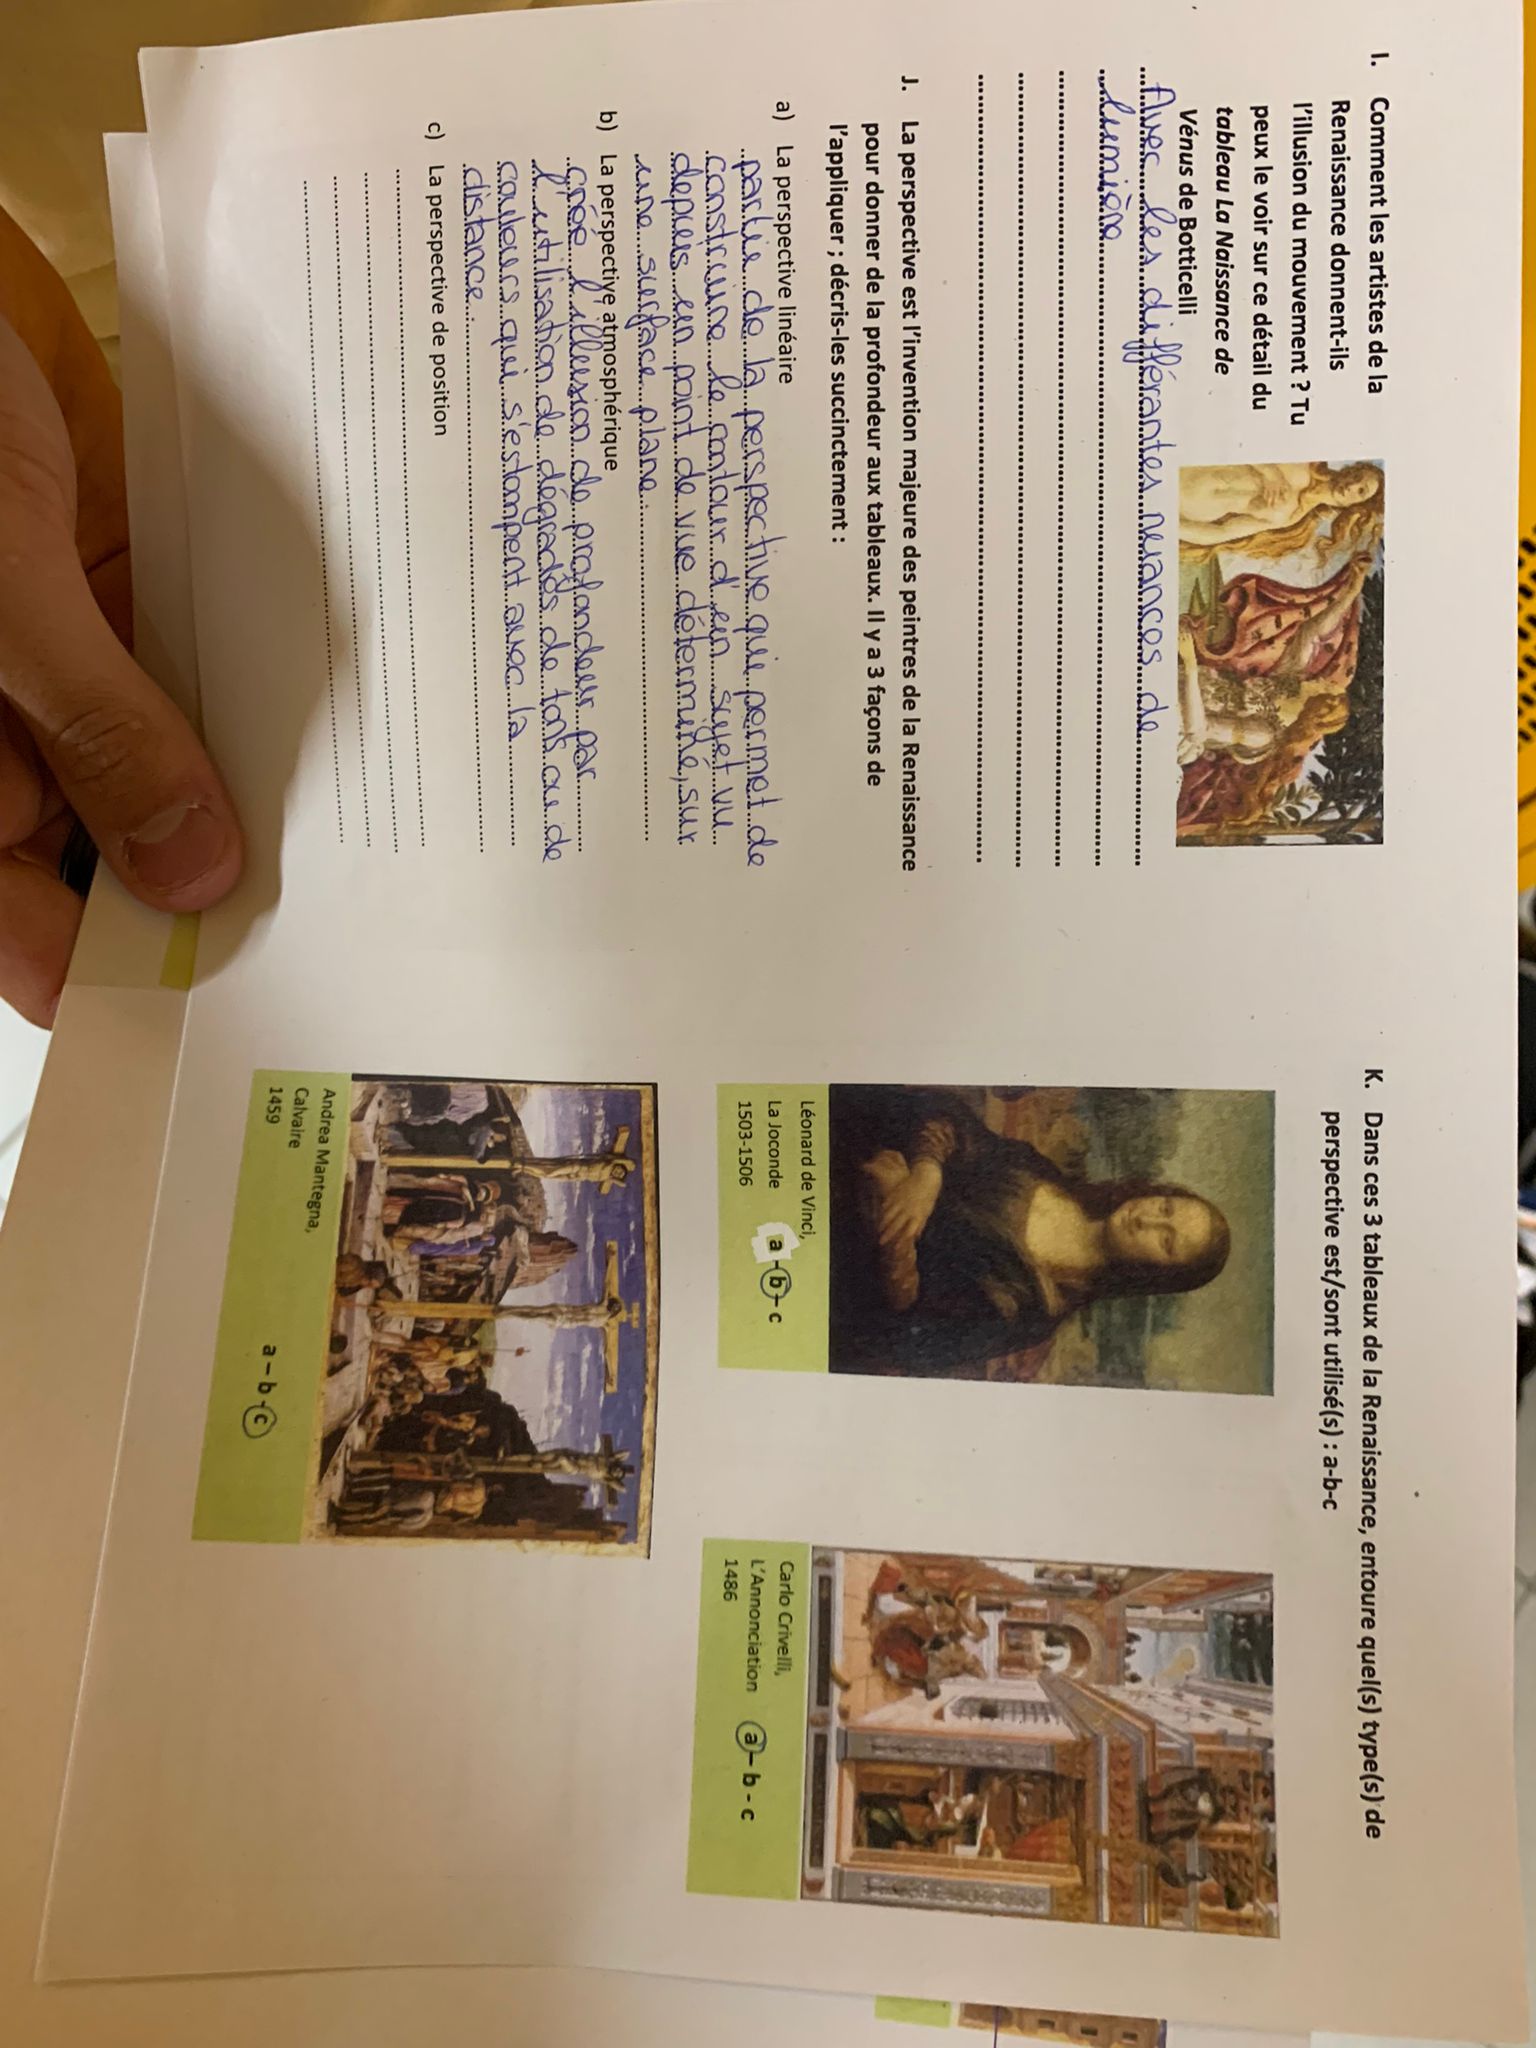 I. Comment les artistes de la
Renaissance donnent-ils
l'illusion du mouvement ? Tu
peux le voir sur ce détail du
tableau La Naissance de
Vénus de Botticelli
Avec les différantes nuances de
lumière
J. La perspective est l'invention majeure des peintres de la Renaissance
pour donner de la profondeur aux tableaux. Il y a 3 façons de
l'appliquer ; décris-les succinctement :
a) La perspective linéaire
partie de la perspective qui permet de
construire le contour d'un sujet vu
depuis un point de vue déterminé, sur
une surface plane.
b) La perspective atmosphérique
créé l'illusion de profondeur par
l'utilisation de dégradés de tons ou de
couleurs qui s'estompent avec la
distance.
c) La perspective de position
K. Dans ces 3 tableaux de la Renaissance, entoure quel(s) type(s) de
perspective est/sont utilisé(s) : a-b-c
Léonard de Vinci,
La Joconde
1503-1506
a - b - c
Carlo Crivelli,
L'Annonciation
1486
a - b - c
Andrea Mantegna,
Calvaire
1459
a – b - c